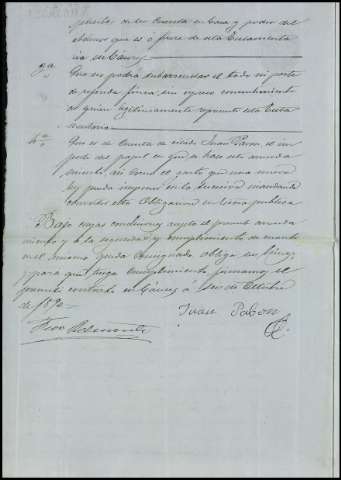 pientes de su cuenta en casa y poder del
Albacea que es o fuere de esta Testamenta
ria de Cáceres
3ª
Que no podrá subarrendar el todo ni parte
de referida finca, sin expreso consentimiento
de quien legitimamente represente esta Testa
mentaria
4ª
Que es de cuenta de citado Juan Pavon, el im
porte del papel en que se hace este arrenda
miento, así como el gasto que una nueva
ley pueda imponer en lo sucesivo mandando
elevar esta Obligacion en escra publica
Bajo cuyas condiciones acepto el presente arrenda
miento y a la seguridad y cumplimiento de cuanto
en el mismo queda consignado, obliga sus bienes
y para que tenga cumplimiento firmamos el
presente contrato en Cáceres á seis de Octubre
de 1890
Juan Pabon